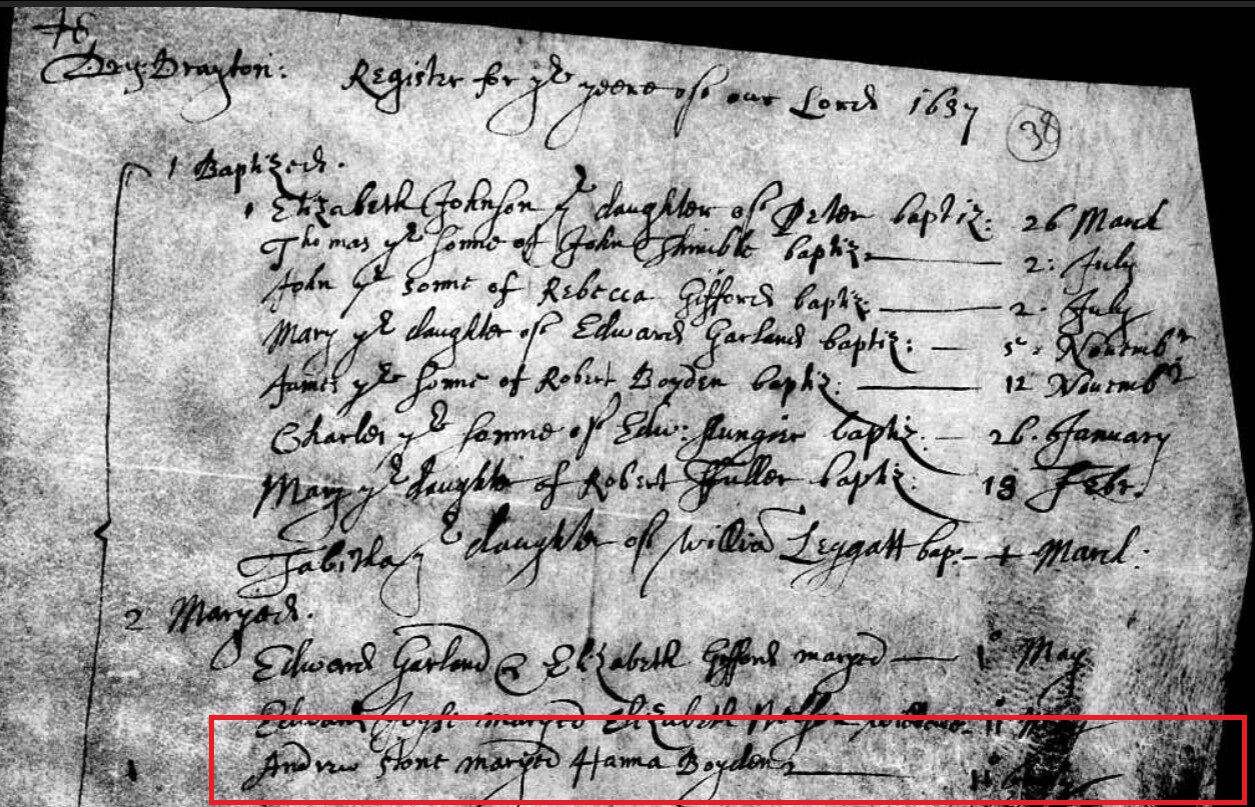 46
Dry: Drayton: Register for yᵉ yeere of our Lord 1637
38
1 Baptized.
Elizabeth Johnson yᵉ daughter of Peter baptiz: 26 March
Thomas yᵉ sonne of John Thimble baptiz. 2: July
John yᵉ sonne of Rebecca Gifford baptiz: 2. July
Mary yᵉ daughter of Edward Garland baptiz: 5º: Novembʳ
James yᵉ sonne of Robert Boyden baptiz: 12 Novembʳ
Charles yᵉ sonne of Edw: baptiz. 26. January
Mary yᵉ daughter of Robert ffuller baptiz: 18 Febr.
Tabitha yᵉ daughter of Willia Leggatt bap: March:
2 Maryed.
Edward Garland & Elizabeth Gifford maryed 1º May
Edward maryed Elizabeth
Andrew Stone maryed Hanna Boyden 11